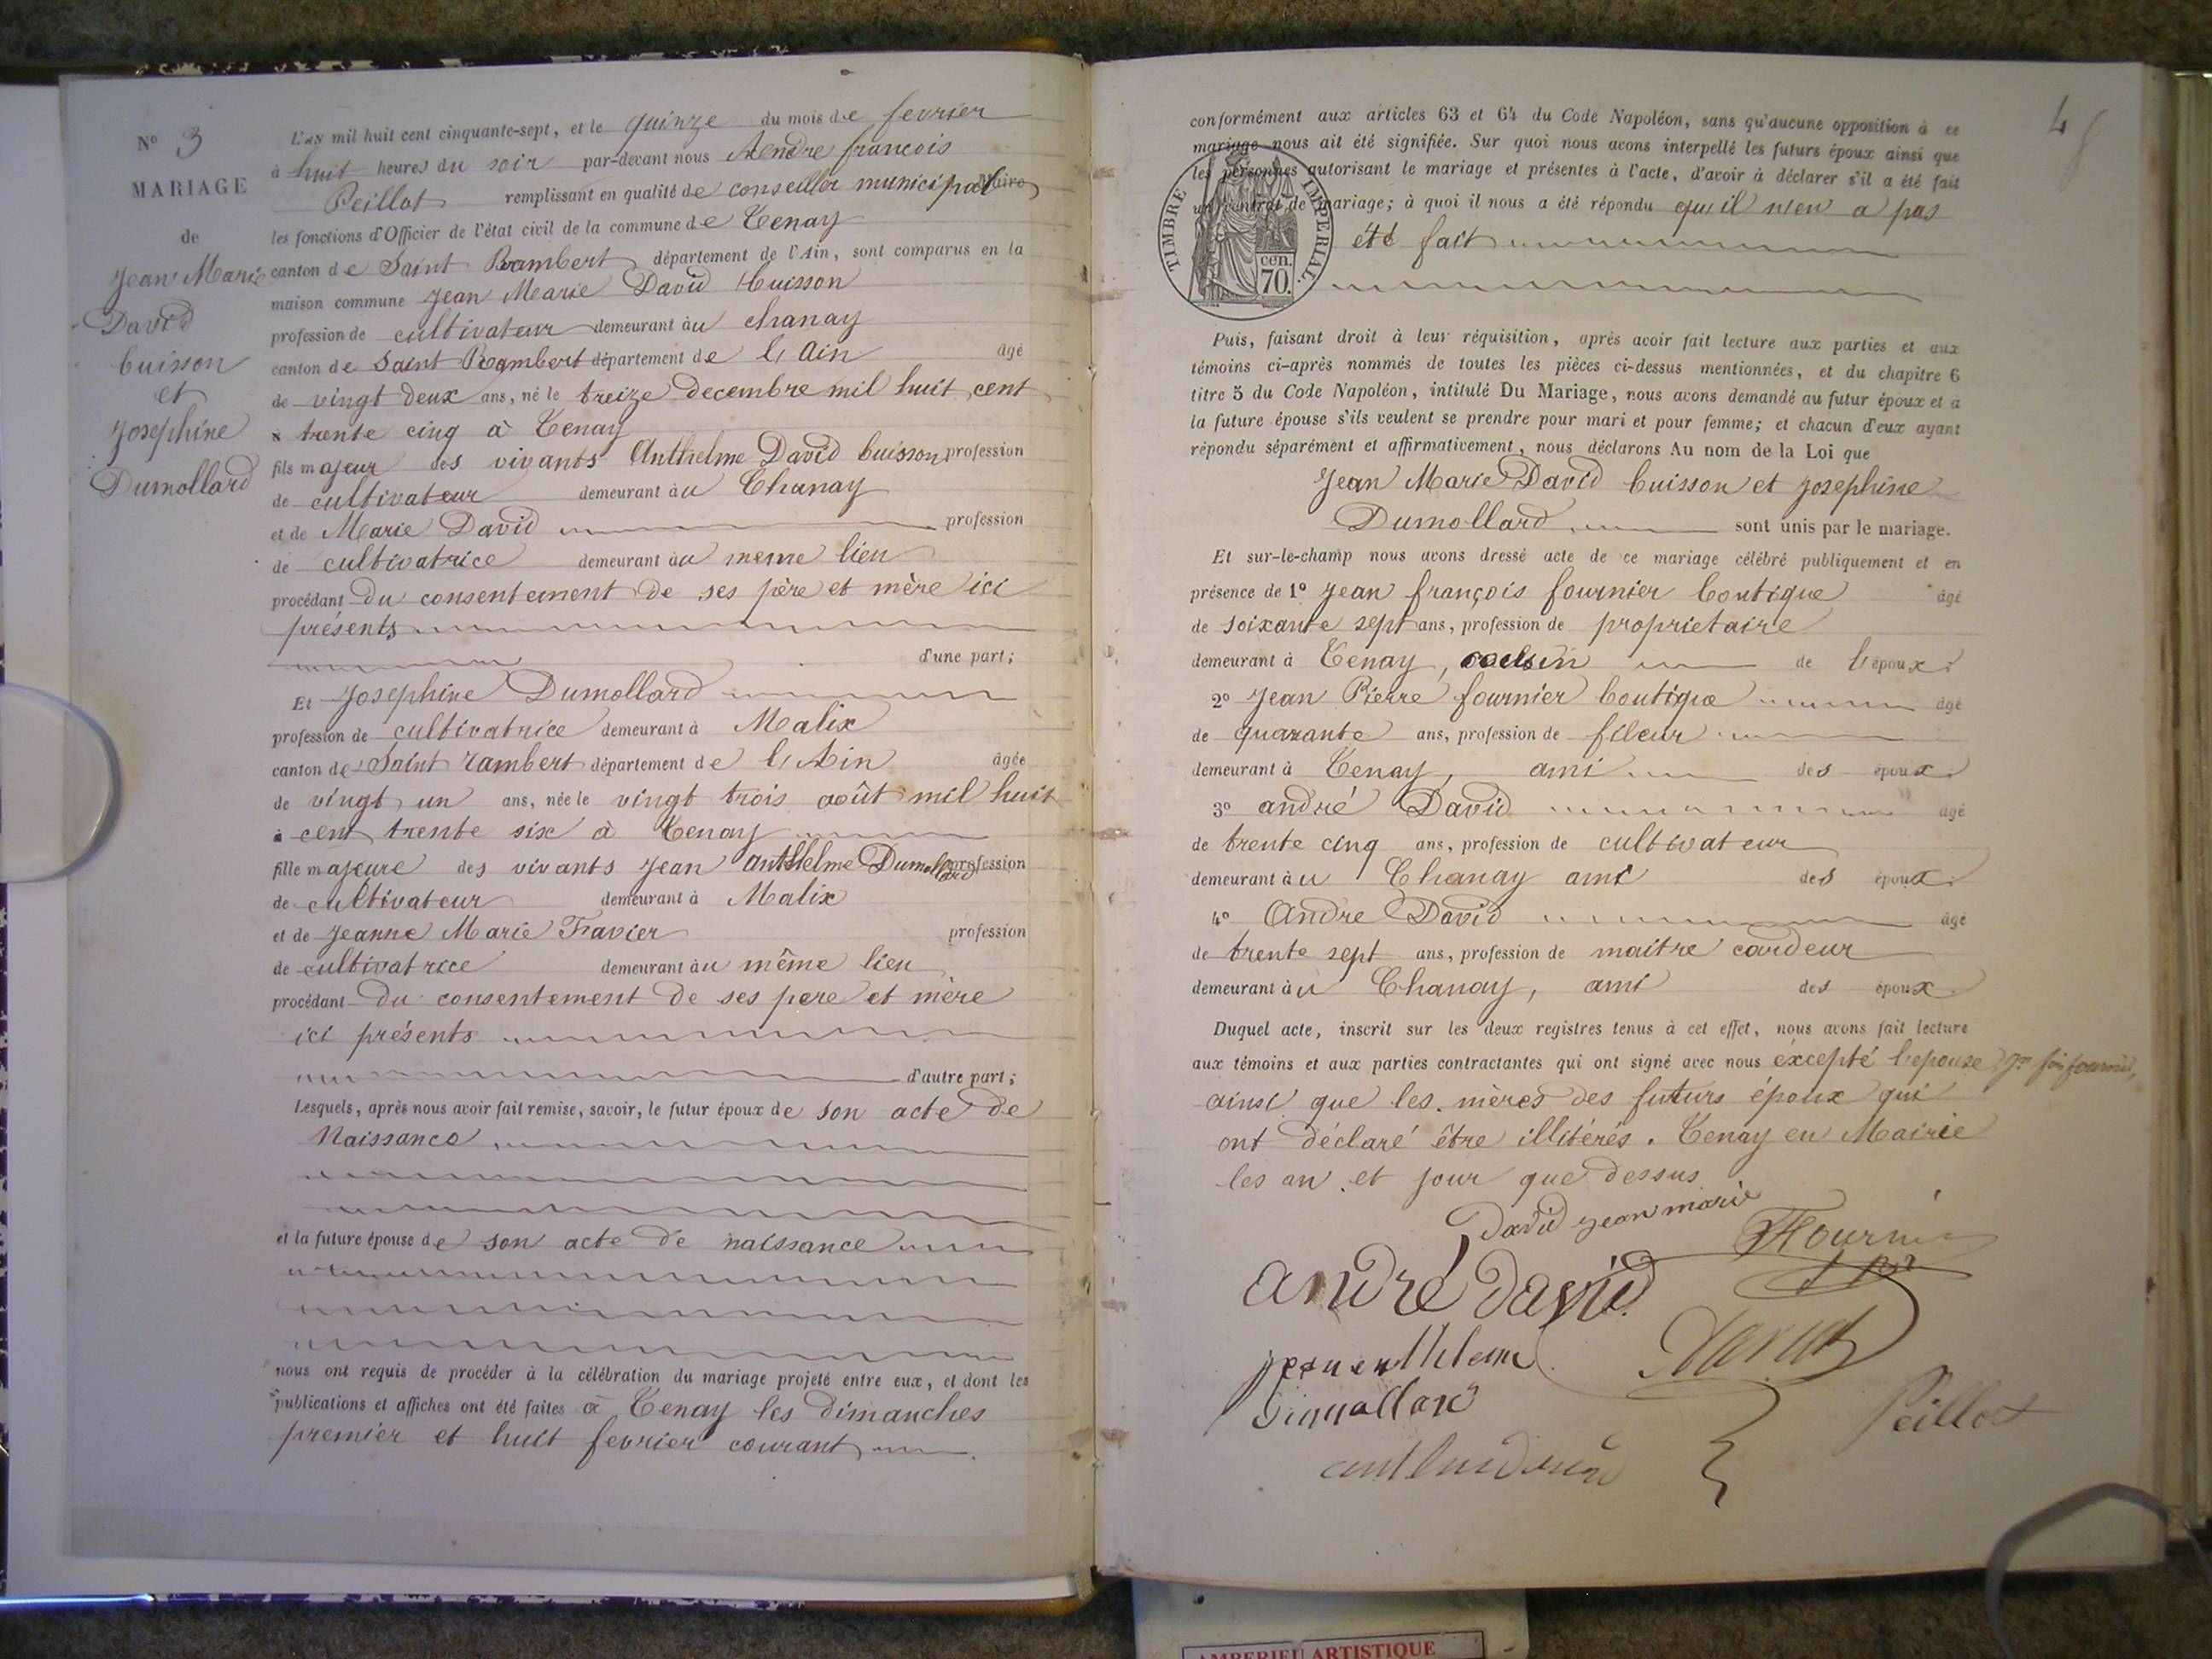 N° 3
MARIAGE
de
Jean Marie
David
buisson
et
Josephine
Dumollard
L'AN mil huit cent cinquante-sept, et le quinze du mois de fevrier
à huit heures du soir par-devant nous Andre francois
Peillot remplissant en qualité de conseiller municipal Maire
les fonctions d'Officier de l'état civil de la commune de Tenay
canton de Saint Rambert département de l'Ain, sont comparus en la
maison commune Jean Marie David buisson
profession de cultivateur demeurant au chanay
canton de Saint Rambert département de l'Ain âgé
de vingt deux ans, né le treize decembre mil huit cent
à trente cinq à Tenay
fils majeur des vivants Anthelme David buisson profession
de cultivateur demeurant au Chanay
et de Marie David profession
de cultivatrice demeurant au meme lieu
procédant du consentement de ses père et mère ici
présents
d'une part;
Et Josephine Dumollard
profession de cultivatrice demeurant à Malix
canton de Saint rambert département de l'Ain âgée
de vingt un ans, née le vingt trois août mil huit
à cent trente six à Tenay
fille majeure des vivants Jean Anthelme Dumollard profession
de cultivateur demeurant à Malix
et de Jeanne Marie Travier profession
de cultivatrice demeurant au même lieu
procédant du consentement de ses pere et mère
ici présents
d'autre part;
Lesquels, après nous avoir fait remise, savoir, le futur époux de son acte de
Naissance
et la future épouse de son acte de naissance
nous ont requis de procéder à la célébration du mariage projeté entre eux, et dont les
publications et affiches ont été faites à Tenay les dimanches
premier et huit fevrier courant
4
conformément aux articles 63 et 64 du Code Napoléon, sans qu'aucune opposition à ce
mariage nous ait été signifiée. Sur quoi nous avons interpellé les futurs époux ainsi que
les personnes autorisant le mariage et présentes à l'acte, d'avoir à déclarer s'il a été fait
un contrat de mariage; à quoi il nous a été répondu qu'il n'en a pas
été fait
TIMBRE IMPERIAL.
cen.
70.
Puis, faisant droit à leur réquisition, après avoir fait lecture aux parties et aux
témoins ci-après nommés de toutes les pièces ci-dessus mentionnées, et du chapitre 6
titre 5 du Code Napoléon, intitulé Du Mariage, nous avons demandé au futur époux et à
la future épouse s'ils veulent se prendre pour mari et pour femme; et chacun d'eux ayant
répondu séparément et affirmativement, nous déclarons Au nom de la Loi que
Jean Marie David buisson et Josephine
Dumollard sont unis par le mariage.
Et sur-le-champ nous avons dressé acte de ce mariage célébré publiquement et en
présence de 1° Jean françois fournier boutique âgé
de soixante sept ans, profession de proprietaire
demeurant à Tenay, de l'époux.
2° Jean Pierre fournier boutique âgé
de quarante ans, profession de fileur
demeurant à Tenay, ami des époux.
3° andré David âgé
de trente cinq ans, profession de cultivateur
demeurant au Chanay ami des époux.
4° Andre David âgé
de trente sept ans, profession de maitre cardeur
demeurant au Chanay, ami des époux.
Duquel acte, inscrit sur les deux registres tenus à cet effet, nous avons fait lecture
aux témoins et aux parties contractantes qui ont signé avec nous éxcepté l'epouse
ainsi que les mères des futurs époux qui
ont déclaré être illitérés. Tenay en Mairie
les an et jour que dessus
David jean marie
Fournier
andré david
David
jean enthlem
Dumollard
Peillot
AMBERIEU ARTISTIQUE